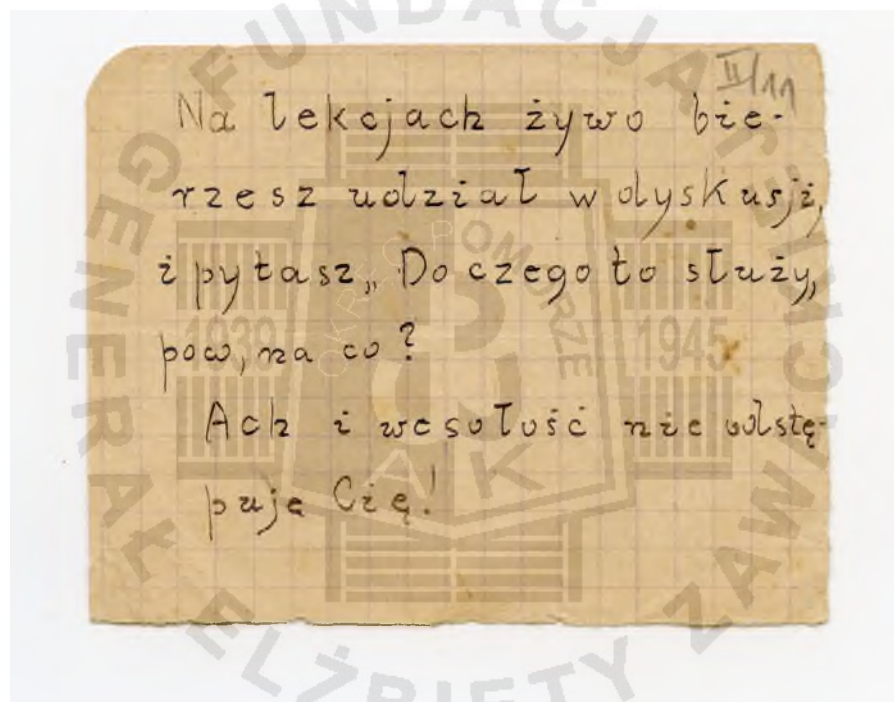 II/11
Na lekcjach żywo bie-
rzesz udział w dyskusji,
i pytasz „Do czego to służy,
pow, na co?
Ach i wesołość nie odstę-
puje Cię!
FUNDACJA
GENERAŁ ELŻBIETY ZAWACKIEJ
OKRĘG POMORZE
1939 1945
AK